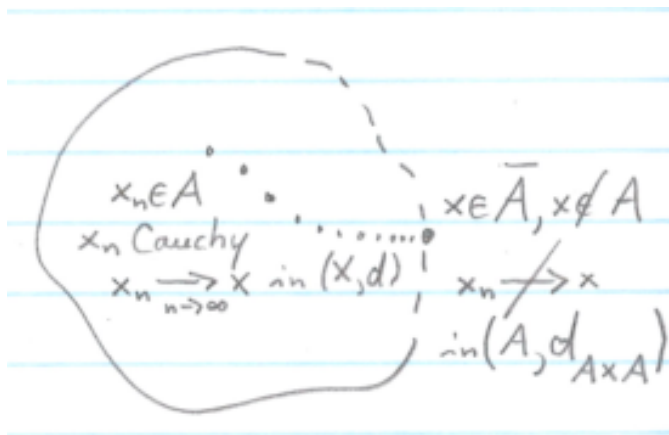 xₙ ∈ A
xₙ Cauchy
xₙ ⟶ x in (X, d)
n→∞
x ∈ A̅, x ∉ A
xₙ ↛ x
in (A, d_{A×A})